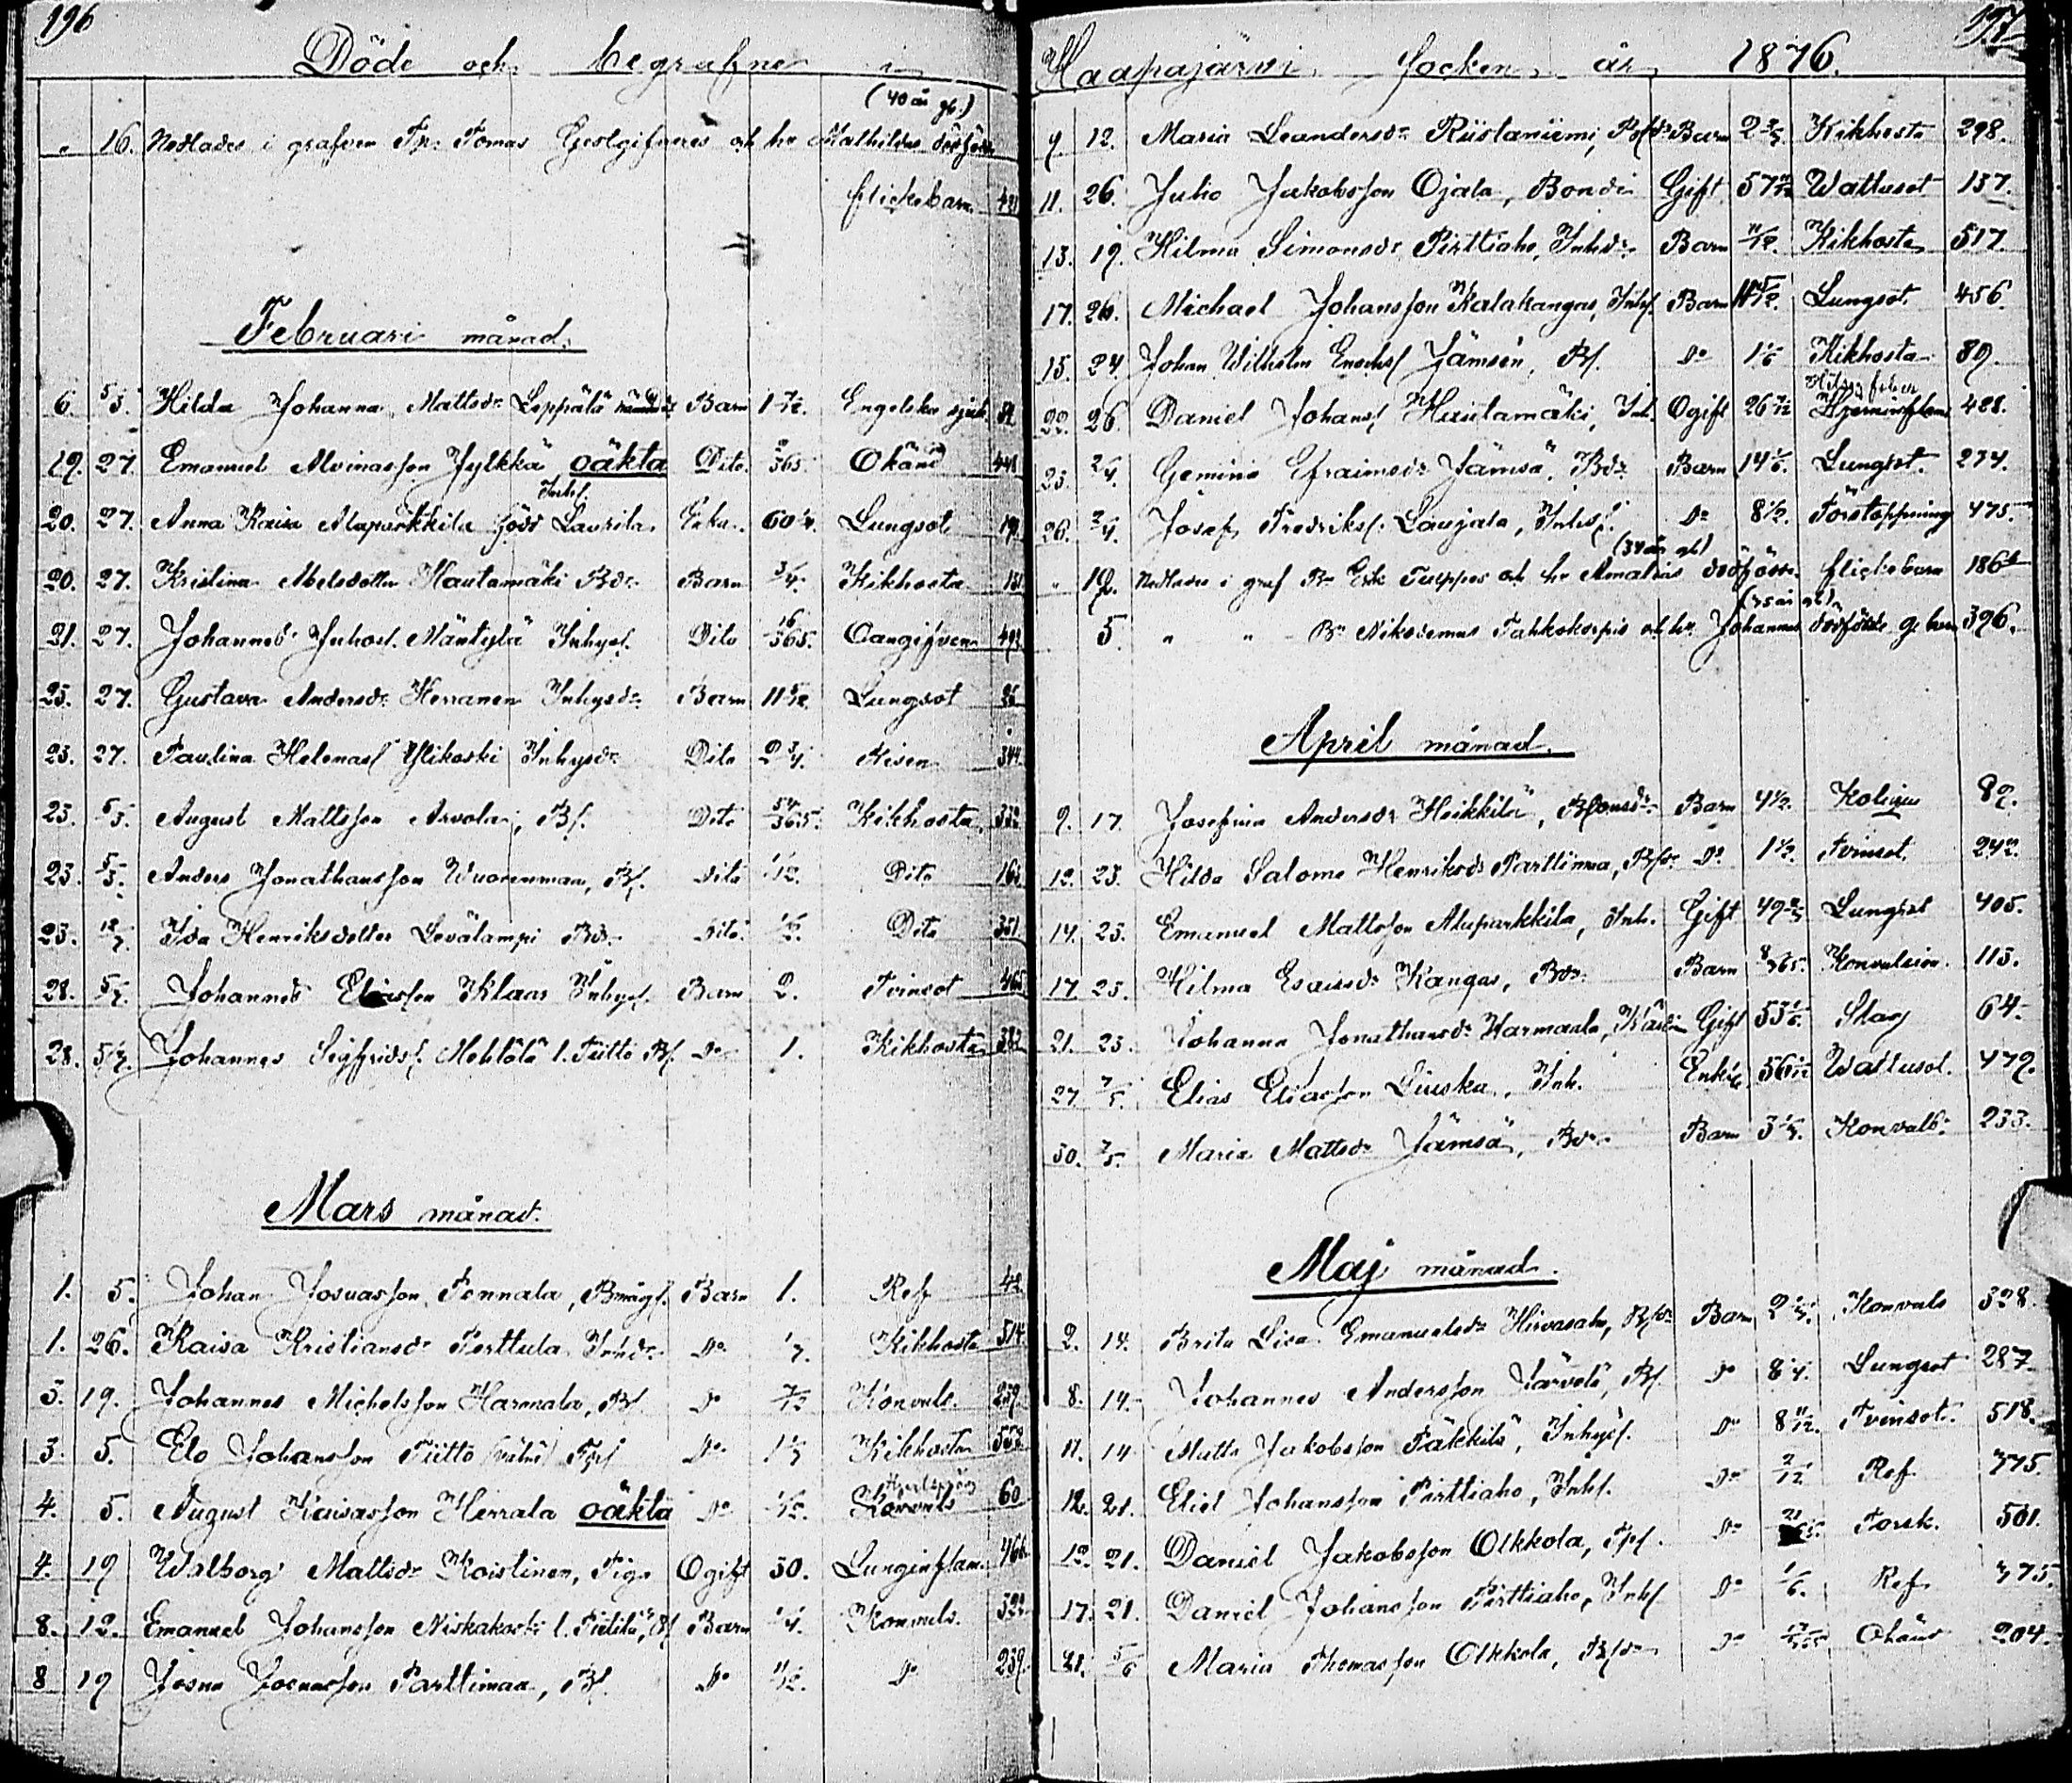 196
Döde och begrafne i
(40 år gl.)
" 16. Nedlades i grafven Tp. Tomas Gestgifveris och hu Mathildas dödfödda
flickebarn 421
Februari månad.
6. 5/3. Hilda Johanna Mattsdr Leppälä Barn 1 7/12. Engelska sjuk.
19. 27. Emanuel Alvinasson Jylkkä oäkta Dito. 2/365 Okänd 448
20. 27. Anna Kaisa Alaparkkila född Laurila. Inhs. Enka. 60 1/4. Lungsot
20. 27. Kristina Abelsdotter Hautamäki Bdr. Barn 3/4. Kikhosta 131
21. 27. Johannes Juhos. Mäntylä Inhys. Dito 16/365. Oangifven 492
25. 27. Gustava Andersdr Herranen Inhysdr. Barn 11 5/12. Lungsot 25
23. 27. Paulina Helenas Ylikoski Inhysdr. Dito 2 3/4. Risen 344
23. 5/3. August Mattsson Arvola, Bs. Dito 54/365. Kikhosta 332
23. 5/3. Anders Jonathansson Wuorenmaa, Bs. Dito 1/12. Dito
23. 12/3. Ida Henriksdotter Levälampi Bdr. Dito. 1/2. Dito 351
28. 5/3. Johannes Eliasson Klaas Inhys. Barn 2. Tvinsot 465
28. 5/3. Johannes Sigfrids. Mehtälä l. Tiitto Bs. Do 1. Kikhosta 383
Mars månad.
1. 5. Johan Josuasson Tennala, Bmågs. Barn 1. Ref 42
1. 26. Kaisa Kristiansdr Perttula Inhdr. Do 1/3. Kikhosta 514
3. 19. Johannes Michelsson Harmala, Bs. Do 7/12 Konvuls. 259
3. 5. Elo Johansson Tiitto Tps Do 1 1/3 Kikhosta 552
4. 5. August Kaisasson Herrala oäkta Do 1/12. Konvuls 60
4. 19 Walborg Mattsdr Koistinen, Pig. Ogift 30. Lunginflam. 466
8. 12. Emanuel Johansson Niskakoski l. Pietilä, Bs Barn 1/4. Konvuls. 322
8 19 Josua Josuasson Parttimaa, Bs. Do 11/12. Do 239.
197
Haapajärvi Socken år 1876.
9. 12. Maria Leandersdr Riistaniemi, Barn 2 2/3. Kikhosta 298.
11. 26. Juho Jakobsson Ojala, Bonde Gift 57 Wattusot 137.
13. 19. Hilma Simonsdr Pirttiaho, Inhdr. Barn 11/12. Kikhosta 517.
17. 26. Michael Johansson Kalakangas, Inhs. Barn Lungsot 456.
15. 24. Johan Wilhelm Enochs Jämsén, Bs. Do 1 1/6 Kikhosta 89.
22. 26. Daniel Johans. Hautamäki, Inh. Ogift 26 7/12 Hjerninflam 488.
23. 2/4. Gemina Efraimsdr Jämsä, Bdr. Barn 14 1/6. Lungsot. 234.
26. 2/4. Josef Fredriks. Laujala, Inhs. Do 8 1/2. Förstoppning 475.
(34 år gl)
" 12. Nedlades i graf Bn Erik Tuppos och hu Amalias dödfödda flickebarn 186
(35 år gl)
5. " " Bn Nikodemus Tahkokorpis och hu Johannas dödfödde g. barn 396.
April månad.
9. 17. Josefina Andersdr Heikkilä, Barn 4 1/2. Kolizia 82.
12. 23. Hilda Salome Henriksdr Parttimaa, Bsdr. Do 1 1/2. Tvinsot 242.
14. 23. Emanuel Mattsson Alaparkkila, Inh. Gift 49 2/3 Lungsot 405.
17. 23. Hilma Esaiasdr Kangas, Bdr. Barn 8/365. Konvulsion. 113.
21. 23. Johanna Jonathansdr Harmaala, Gift 53 1/6. Slag 64.
27. 7/5. Elias Eliasson Liuska, Inh. Enkl. 56 Wattusot. 479.
30. 7/5. Maria Mattsdr Jämsä, Bdr. Barn 3 1/3. Konvuls. 233.
Maj månad.
2. 14. Brita Lisa Emanuelsdr Hirvasaho, Bsdr Barn 2 Konvuls 328.
8. 14. Johannes Andersson Järvelä, Bs. Do 8 1/4. Lungsot 287
11. 14 Matts Jakobsson Päkkilä, Inhys. Do 8 11/12. Tvinsot. 518.
12. 21. Eliel Johansson Pirttiaho, Inhs. Do 2/12 Ref. 375.
12. 21. Daniel Jakobsson Olkkola, Tps. Do Torsk. 501.
17. 21. Daniel Johansson Pirttiaho, Inhs Do 1/6. Ref. 375.
21. 5/6 Maria Thomasson Olkkola, Bsdr Do Okänd 204.